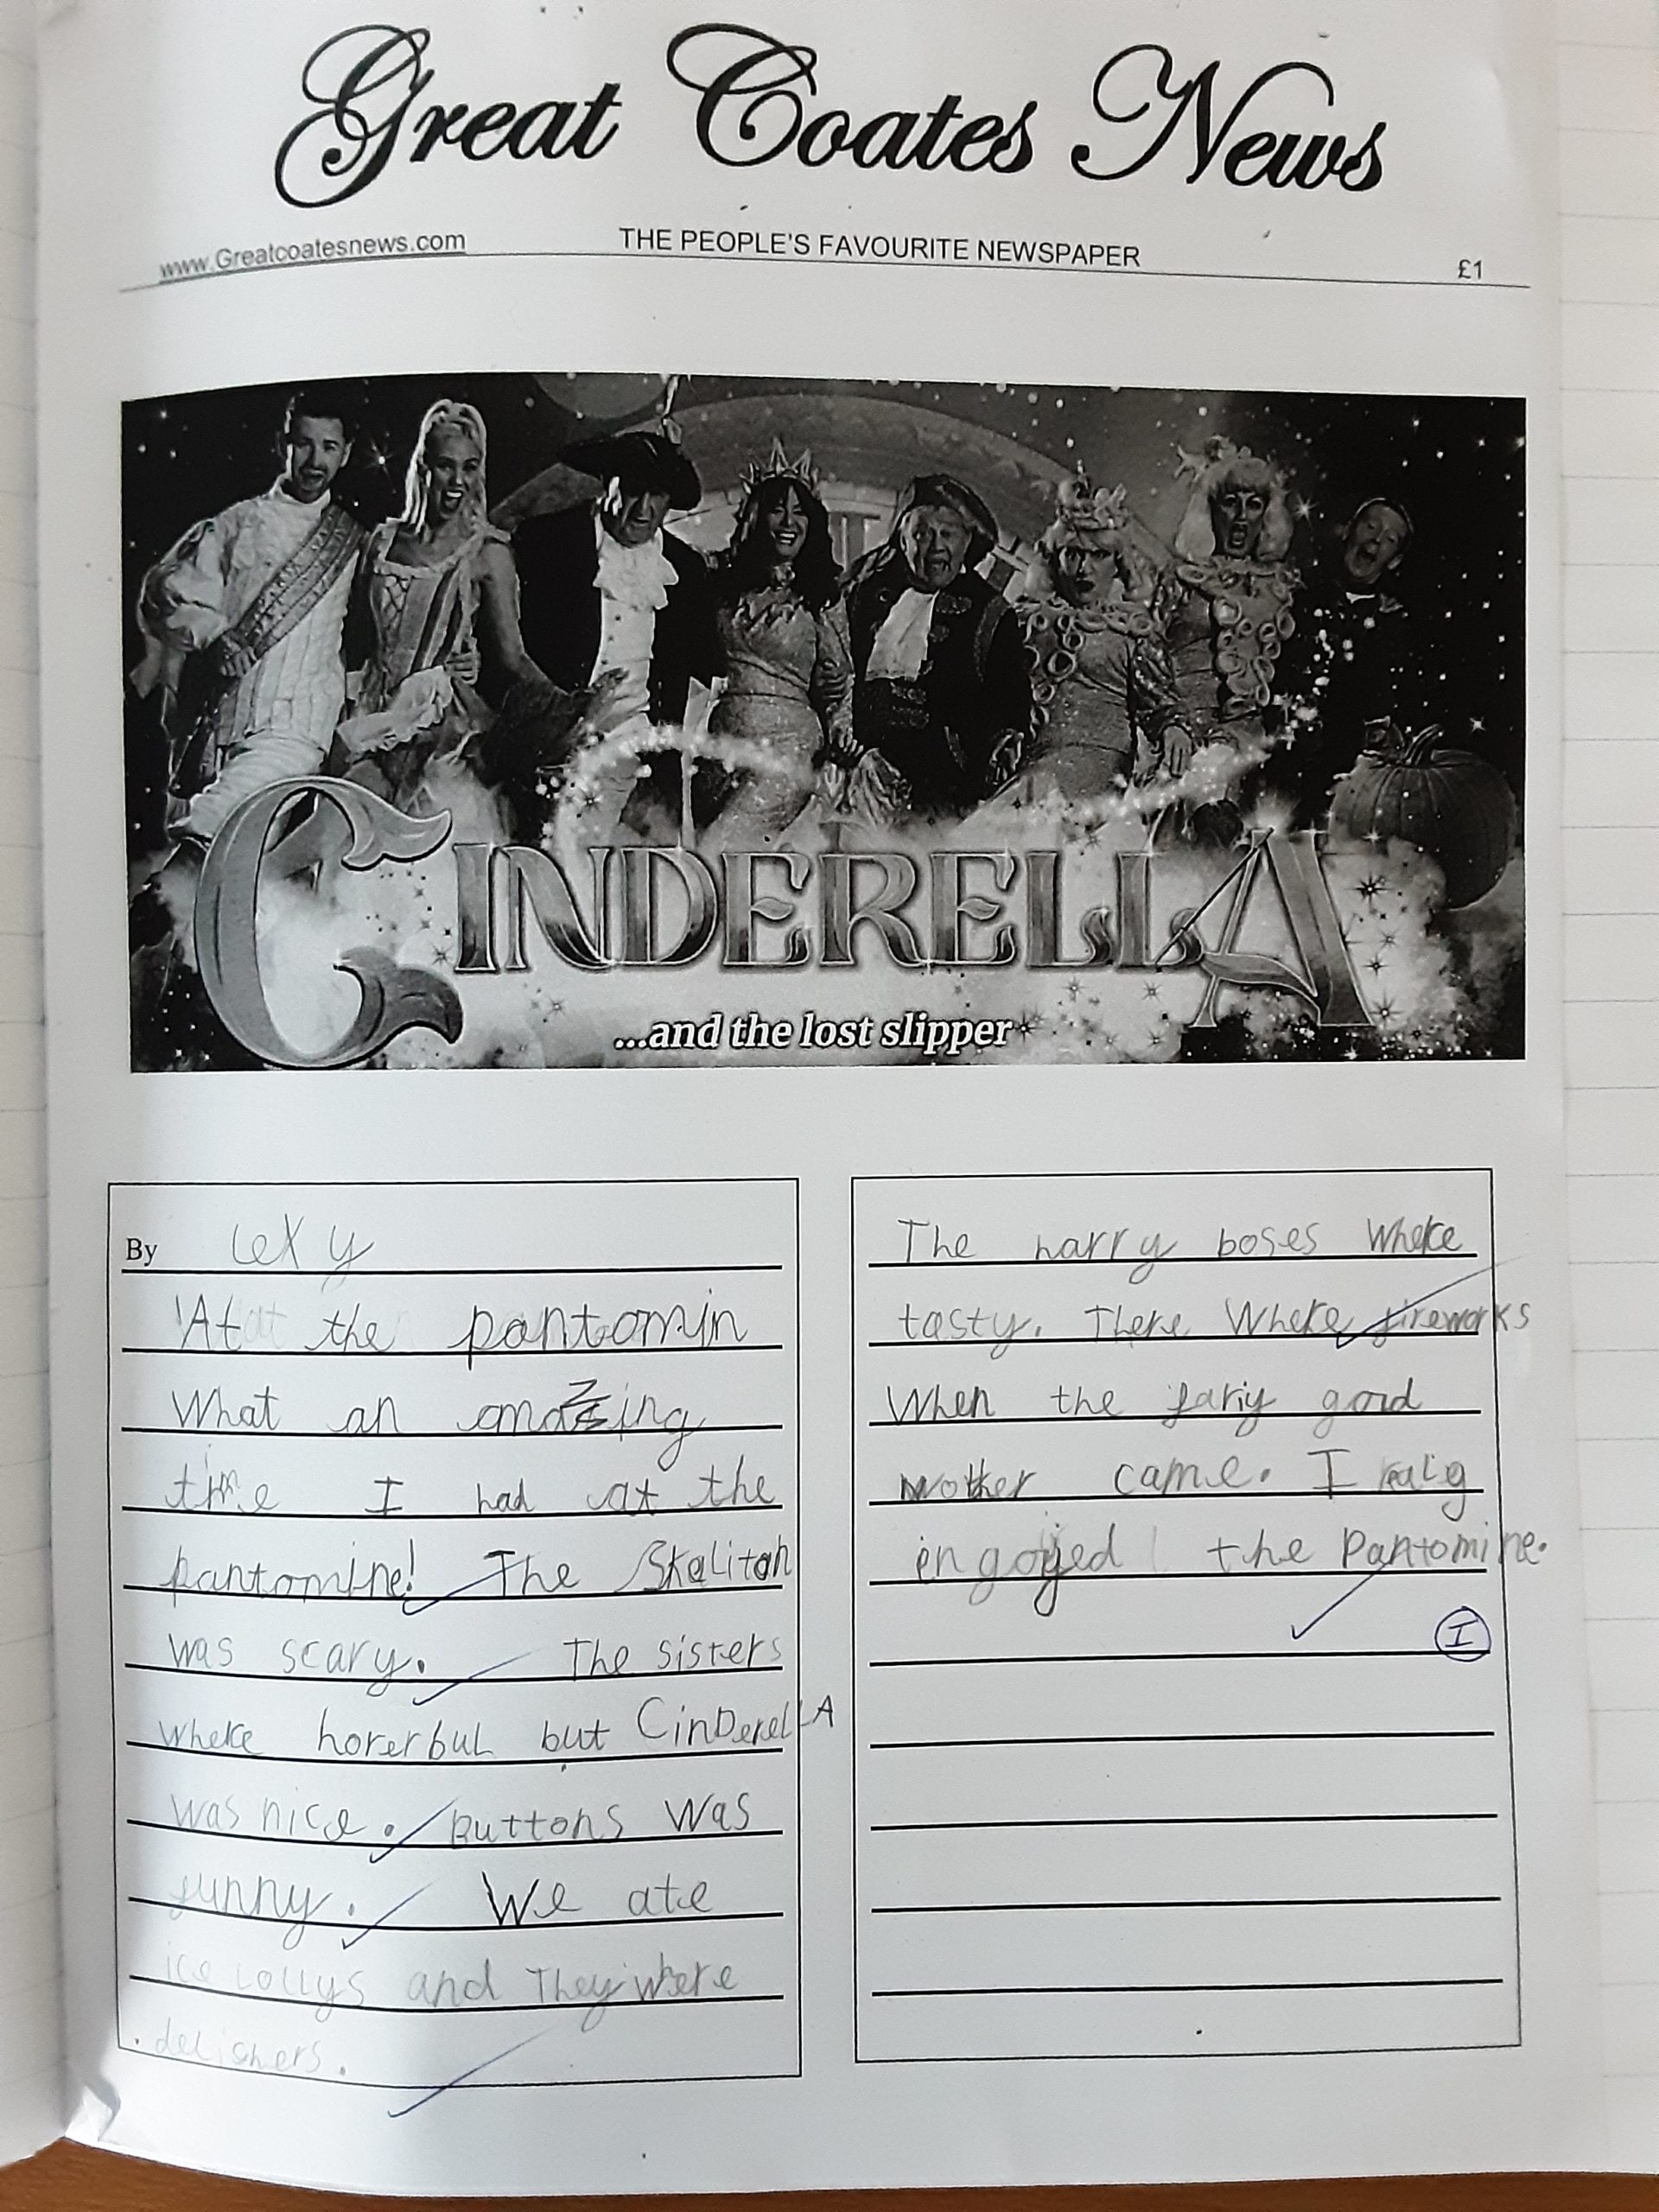 Great Coates News
www.Greatcoatesnews.com THE PEOPLE'S FAVOURITE NEWSPAPER £1
CINDERELLA
...and the lost slipper
By Lexy
At the pantomin
What an amazing
time I had at the
pantomine! The Skalitan
was scary. The sisters
where horerbul but CinDerellA
was nice. Buttons was
funny. We ate
ice lollys and They where
delishers.
The harry boses where
tasty. There where fireworks
when the fariy gord
mother came. I realy
engoyed the pantomine.
I